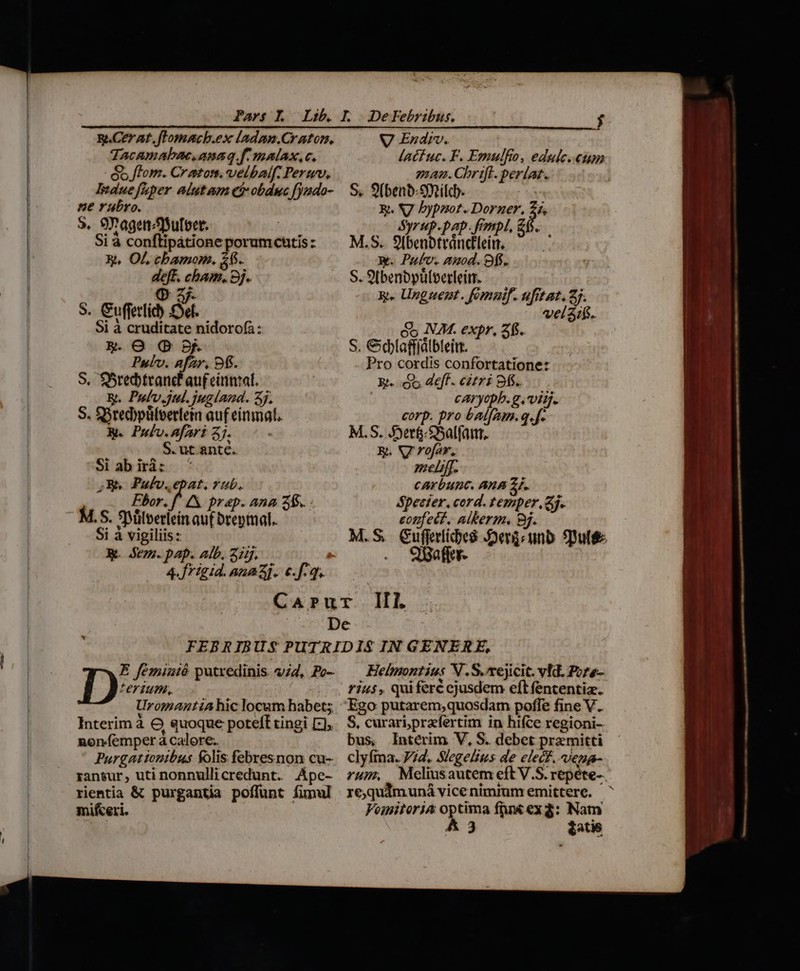 Pars I. Lib. I. De Febribus. 5
℞. Cerat. stomach. ex ladan. Craton.
Tacamahac. ana q. s. malax. c.
stom. Craton. vel balf. Peruv.
Indue super alutam & obduc syndo-
ne rubro.
S. Magen-Pulver.
Si à constipatione porum cutis:
℞. Ol. chamom. ʒß.
dest. cham. ℈j.
S. Eusserlich Oel.
Si à cruditate nidorosa:
Pulv. asar. ℈ß.
S. Brechtranck auf einmal.
℞. Pulv. jul. jugland. ʒj.
S. Brechpülverlein auf einmal.
℞. Pulv. asari ʒj.
S. ut ante.
Si ab irâ:
℞. Pulv. epat. rub.
Ebor. s. △ præp. ana ʒß.
M. S. Pülverlein auf dreymal.
Si à vigiliis:
℞. Sem. pap. alb. ʒiij.
4. frigid. ana ʒj. c. s. q.
▽ Endiv.
lactuc. F. Emulsio, edulc. cum
man. Christ. perlat.
S. Abend-Milch.
℞. ▽ hypnot. Dorner. ʒi.
Syrup. pap. simpl. ʒß.
M. S. Abendträncklein.
℞. Pulv. anod. ℈ß.
S. Abendpülverlein.
℞. Unguent. somnif. usitat. ʒj.
vel ʒiß.
NM. expr. ʒß.
S. Schlaffsälblein.
Pro cordis confortatione:
℞. dest. citri ℈ß.
caryoph. g. viij.
corp. pro balsam. q. s.
M. S. Hertz-Balsam.
℞. ▽ rosar.
meliss.
carbunc. ana ʒi.
Specier. cord. temper. ʒj.
confect. alkerm. ℈j.
M. S. Eusserliches Hertz- und Puls-
Wasser.
CAPUT III.
De
FEBRIBUS PUTRIDIS IN GENERE,
DE seminiô putredinis vid, Po-
terium,
Uromantia hic locum habet;
Interim à ☉ quoque potest tingi ⊡,
non semper à calore.
Purgationibus solis febres non cu-
rantur, uti nonnulli credunt. Ape-
rientia & purgantia possunt simul
misceri.
Helmontius V. S. rejicit. vid. Pote-
rius, qui ferè ejusdem est sententiæ.
Ego putarem, quosdam posse sine V.
S. curari, præsertim in hisce regioni-
bus, Interim V. S. debet præmitti
clysma. Vid. Slegelius de elect. vena-
rum, Melius autem est V. S. repete-
re, quàm unâ vice nimium emittere.
Vomitoria optima sunt ex ♁: Nam
A 3 statis